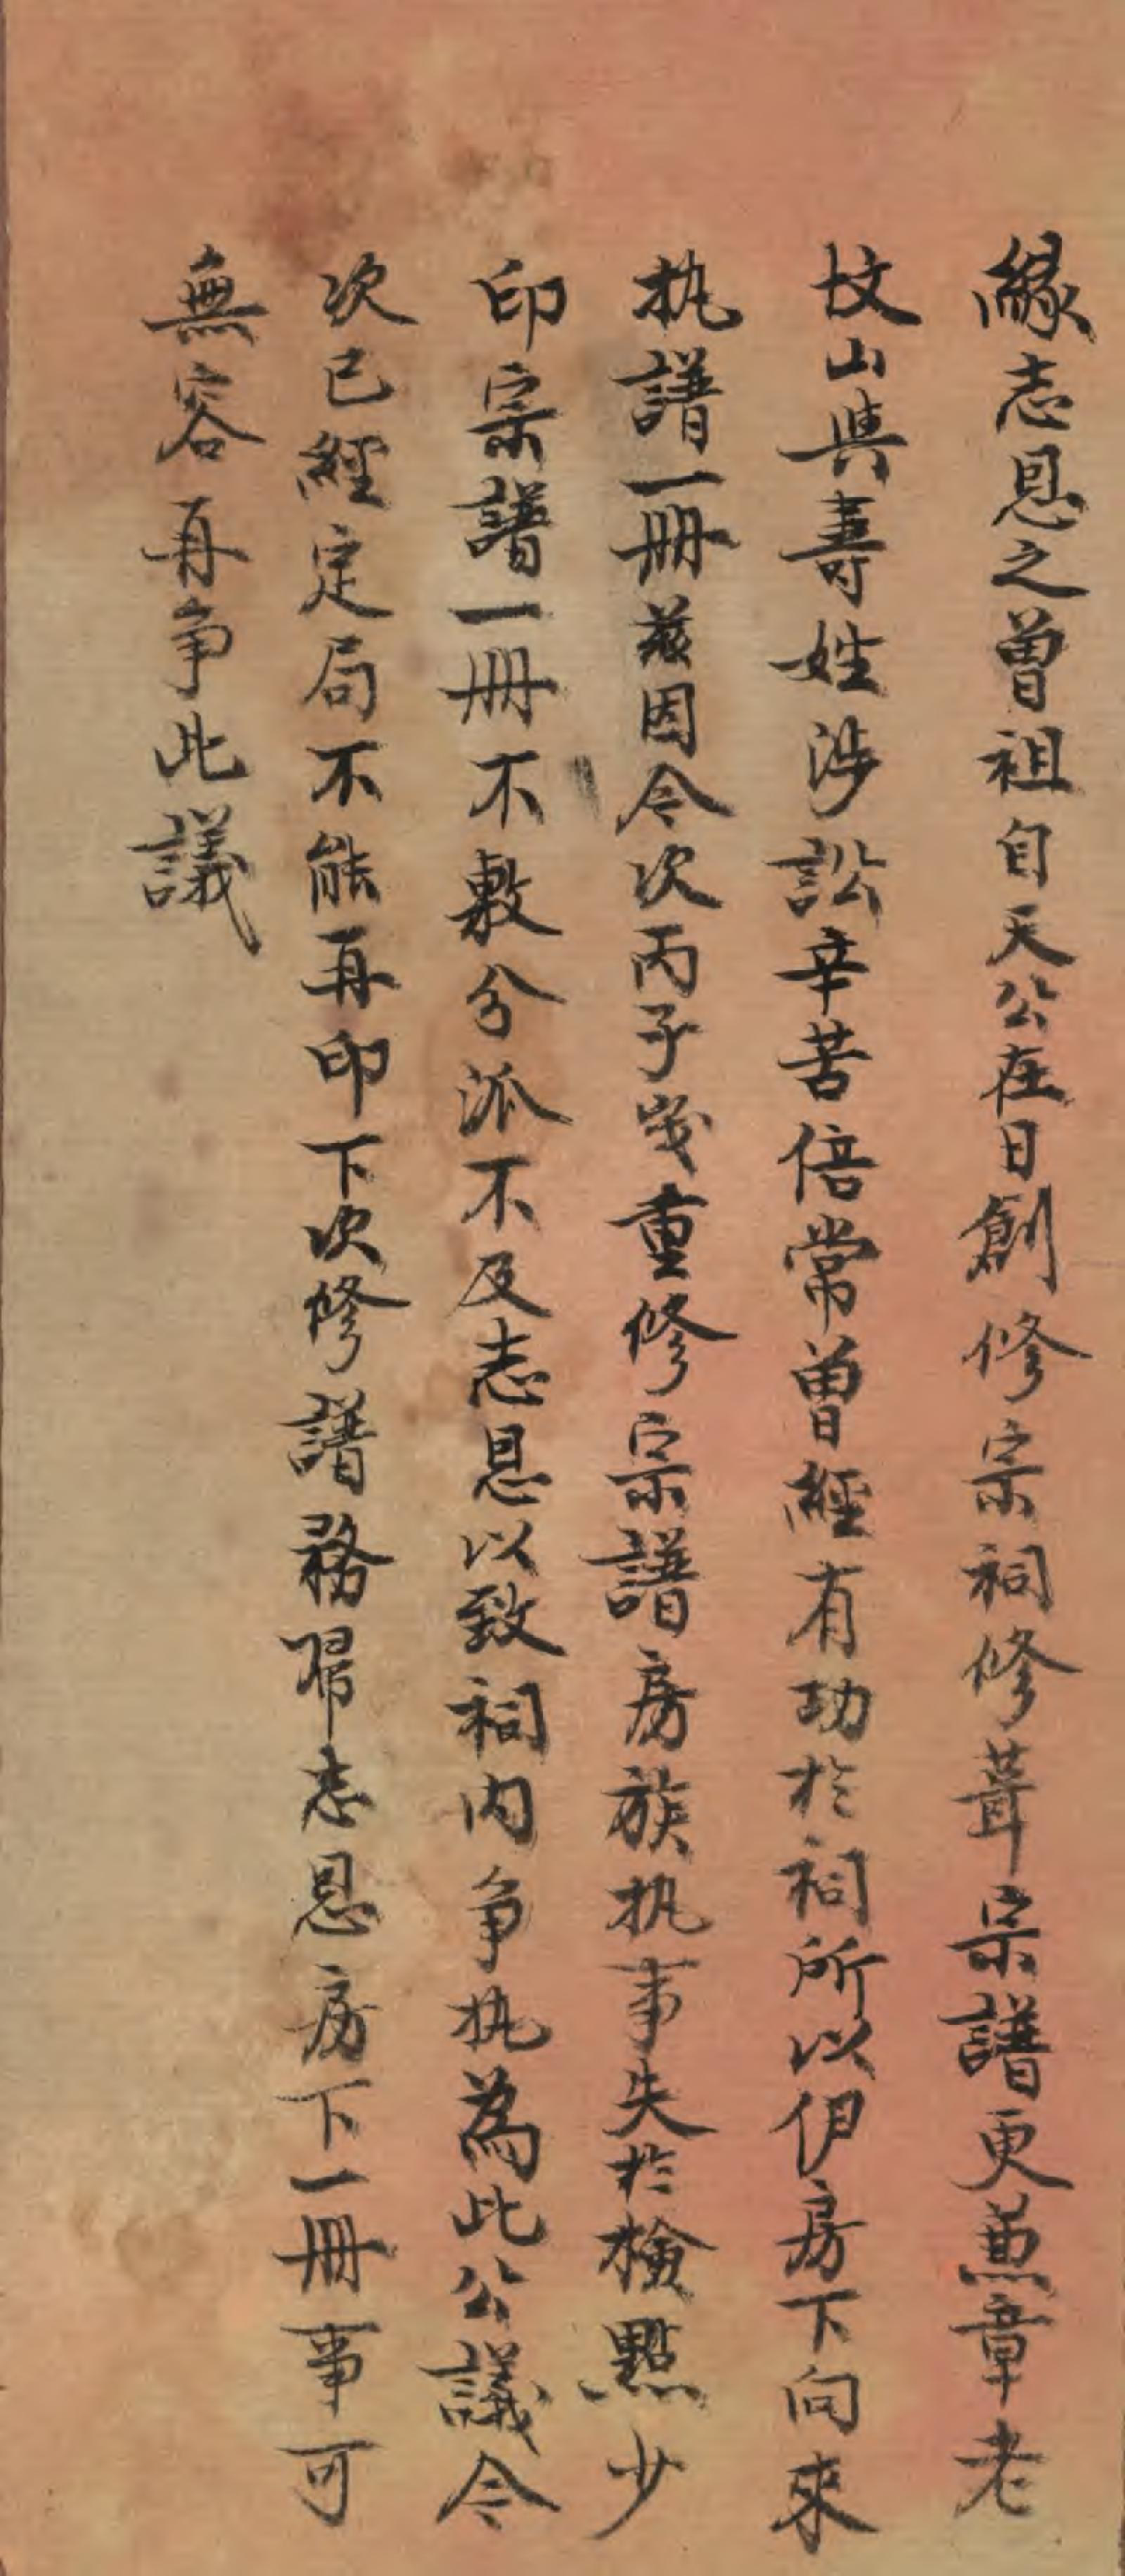 緣志恩之曾祖自天公在日創修宗祠修葺宗譜更兼章老
坟山與壽姓涉訟辛苦倍常曾經有功於祠所以伊房下向來
执譜一冊茲因今次丙子岁重修宗譜房族执事失於檢點少
印宗譜一冊不敷分派不及志恩以致祠内争执為此公議今
次已經定局不能再印下次修譜務帰志恩房下一冊事可
無容再争此議